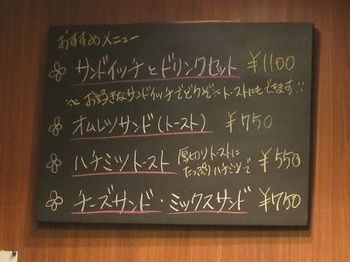 おすすめメニュー
サンドイッチとドリンクセット ¥1100
〜お好きなサンドイッチでどうぞ〜トーストにもできます!!
オムレツサンド(トースト) ¥750
ハチミツトースト 厚切りトーストに ¥550
たっぷりハチミツで
チーズサンド・ミックスサンド ¥750